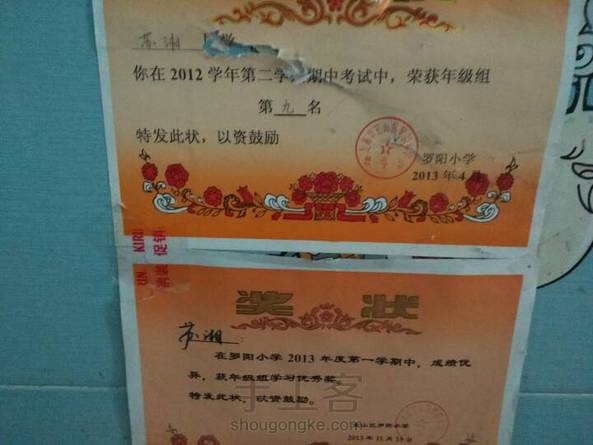 苏湘 同学
你在 2012 学年第二学期期中考试中，荣获年级组
第 九 名
特发此状，以资鼓励
罗阳小学
2013 年 4 月
KIRI
促销
奖 状
苏湘：
在罗阳小学 2013 年度第一学期中，成绩优
异，获年级组学习优秀奖。
特发此状，以资鼓励。
宝山区罗阳小学
2013 年 11 月 15 日
手工客
shougongke.com